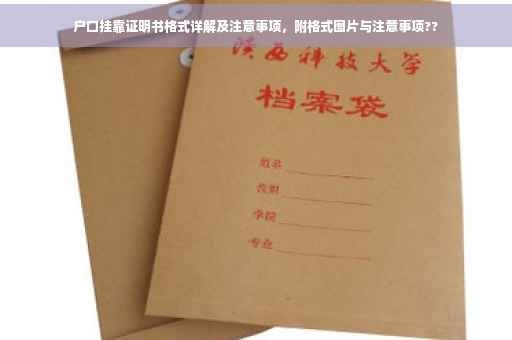 户口挂靠证明书格式详解及注意事项，附格式图片与注意事项??
陕西科技大学
档案袋
姓名
学院
专业